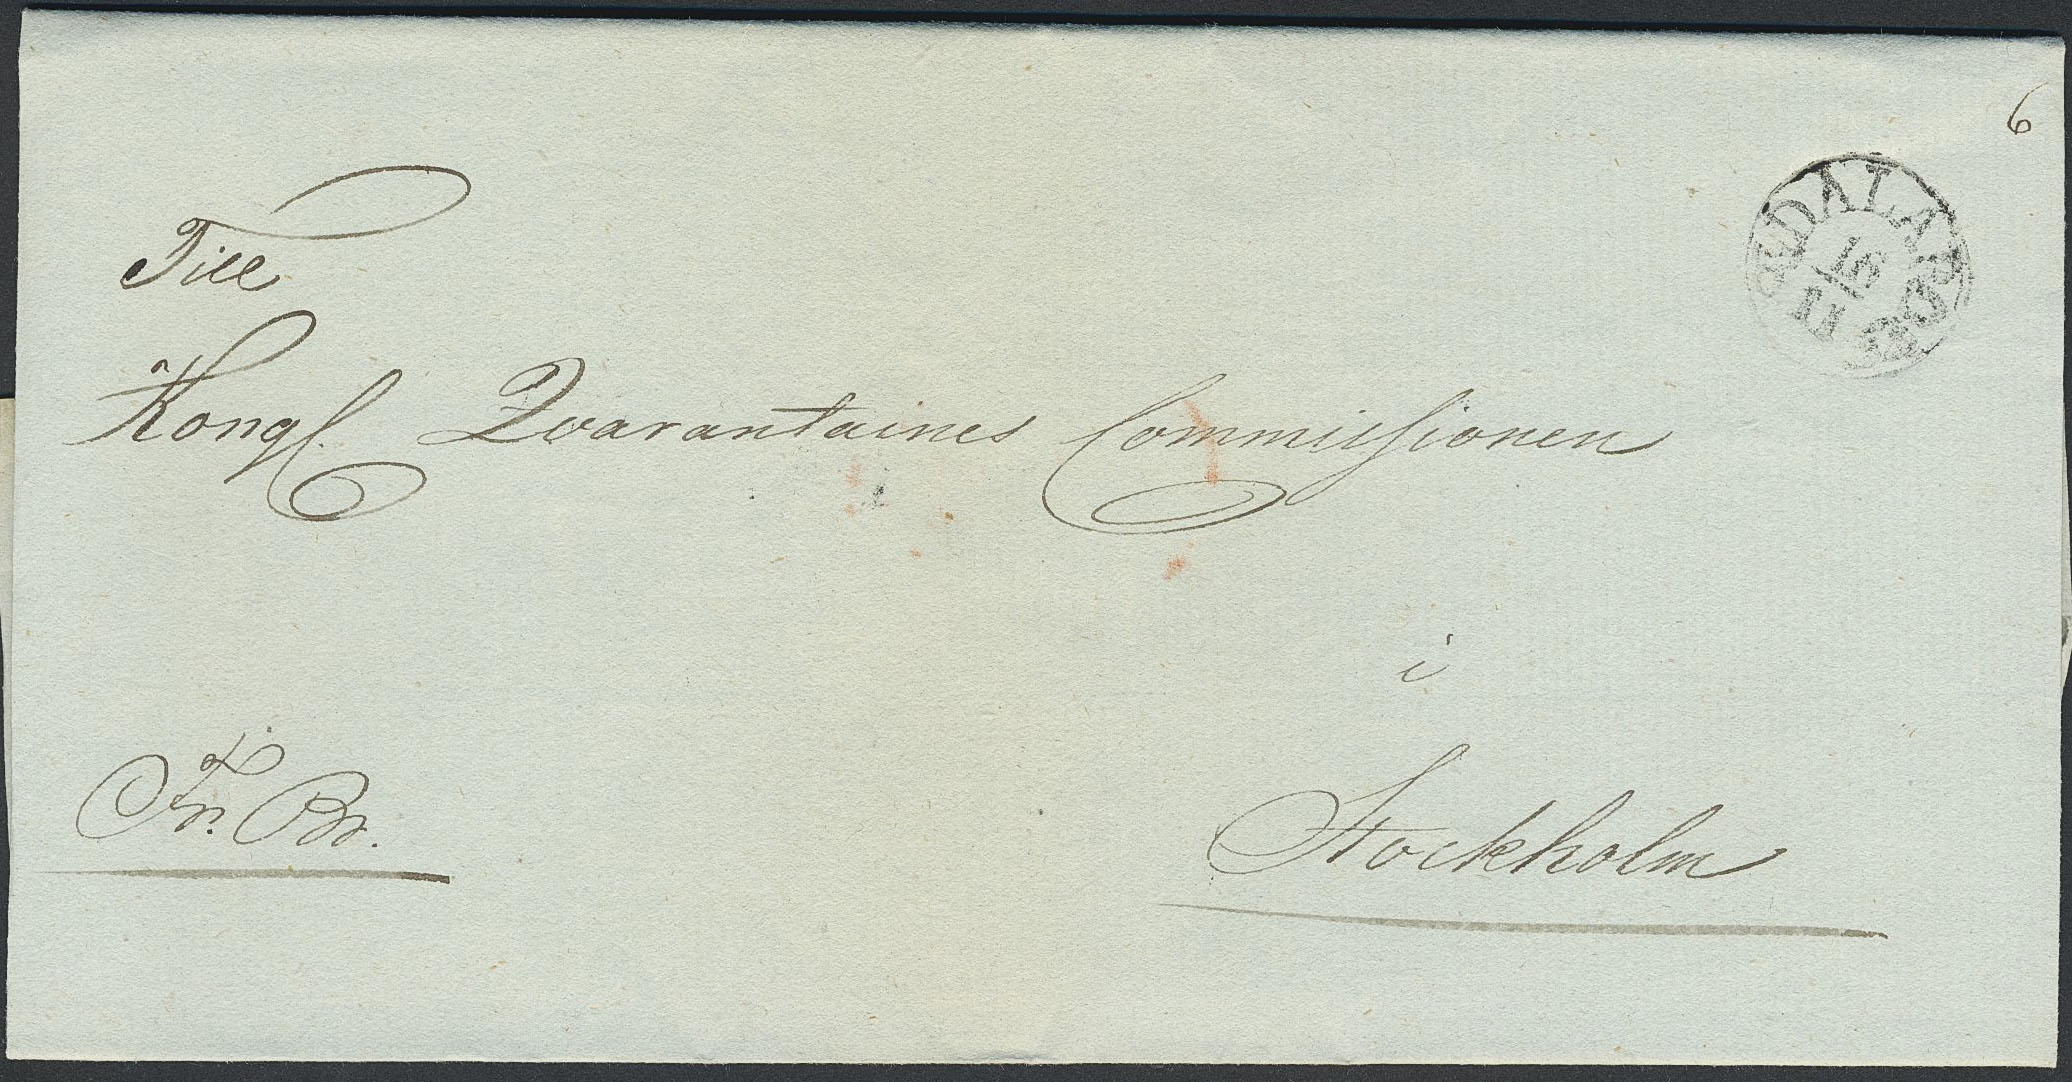 6
DALARÖ
16
11
Till
Kongl. Qvarantaines Commissionen
i
Stockholm
Fr. Br.